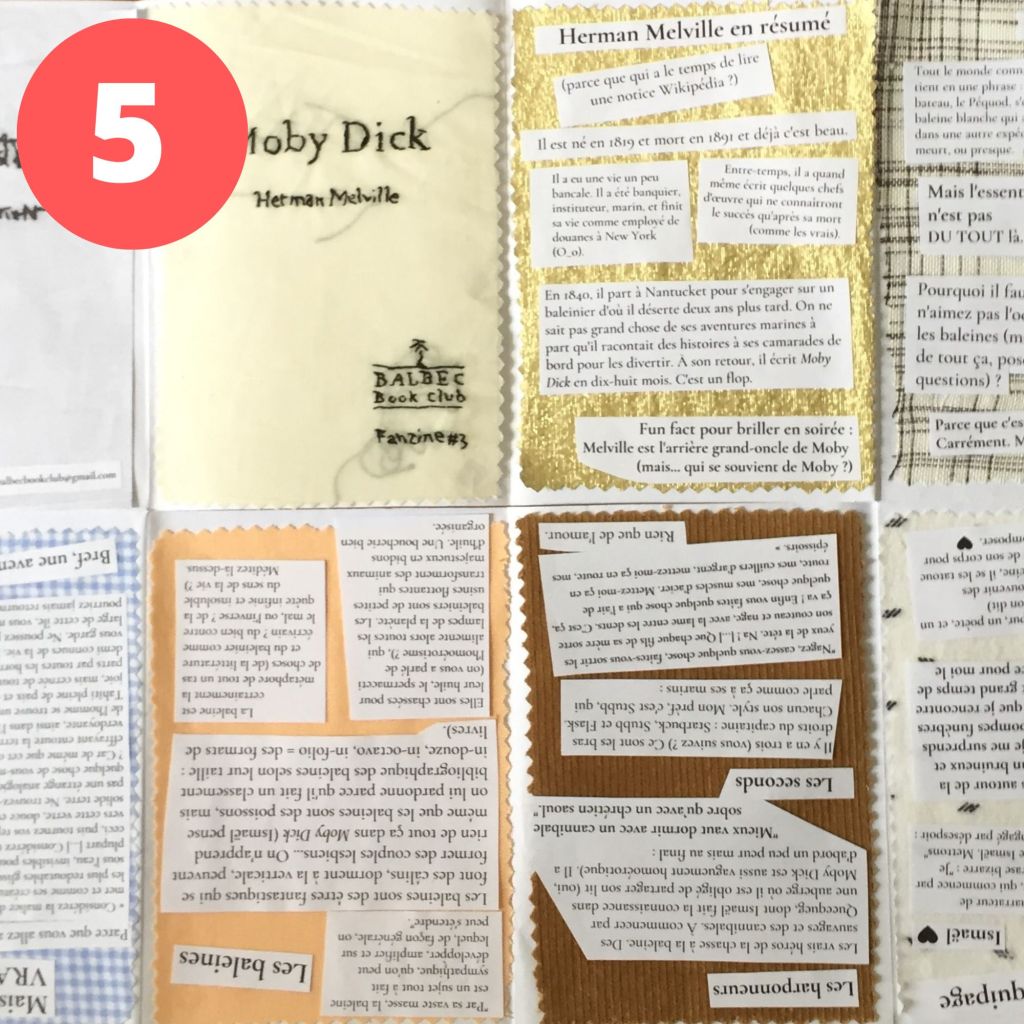 5
Moby Dick
Herman Melville
BALBEC
Book Club
Fanzine #3
Herman Melville en résumé
(parce que qui a le temps de lire
une notice Wikipédia ?)
Il est né en 1819 et mort en 1891 et déjà c'est beau.
Il a eu une vie un peu
bancale. Il a été banquier,
instituteur, marin, et finit
sa vie comme employé de
douanes à New York
(O_o).
Entre-temps, il a quand
même écrit quelques chefs
d'œuvre qui ne connaîtront
le succès qu'après sa mort
(comme les vrais).
En 1840, il part à Nantucket pour s'engager sur un
baleinier d'où il déserte deux ans plus tard. On ne
sait pas grand chose de ses aventures marines à
part qu'il racontait des histoires à ses camarades de
bord pour les divertir. À son retour, il écrit Moby
Dick en dix-huit mois. C'est un flop.
Fun fact pour briller en soirée :
Melville est l'arrière grand-oncle de Moby
(mais... qui se souvient de Moby ?)
Tout le monde conn
tient en une phrase :
bateau, le Péquod, s'e
baleine blanche qui
dans une autre expé
meurt, ou presque.
Mais l'essent
n'est pas
DU TOUT là.
Pourquoi il fau
n'aimez pas l'o
les baleines (m
de tout ça, pos
questions) ?
Parce que c'es
Carrément. M
albecbookclub@gmail.com
Mais
VRA
Parce que vous allez
« Considérez la malice d
mer et comme ses créatu
les plus redoutables gliss
sous l'eau, invisibles pou
plupart [...] Considérez
ceci, puis tournez vos re
vers cette verte, douce e
solide terre. Ne trouvez-
pas une étrange analogie
quelque chose de vous-m
? Car de même que cet o
effrayant entoure la terr
verdoyante, ainsi dans l'
de l'homme se trouve un
Tahiti pleine de paix et
joie, mais cernée de tout
parts par toutes les horr
demi connues de la vie.
vous garde. Ne poussez
large de cette île, vous n
pourriez jamais retourne
Bref, une aven
Les baleines
"Par sa vaste masse, la baleine
est un sujet tout à fait
sympathique, qu'on peut
développer, amplifier et sur
lequel, de façon générale, on
peut s'étendre".
Les baleines sont des êtres fantastiques qui se
font des câlins, dorment à la verticale, peuvent
former des couples lesbiens... On n'apprend
rien de tout ça dans Moby Dick (Ismaël pense
même que les baleines sont des poissons, mais
on lui pardonne parce qu'il fait un classement
bibliographique des baleines selon leur taille :
in-douze, in-octavo, in-folio = des formats de
livres).
Elles sont chassées pour
leur huile, le spermaceti
(on vous a parlé de
l'homoérotisme ?), qui
alimente alors toutes les
lampes de la planète. Les
baleiniers sont de petites
usines flottantes qui
transforment des animaux
majestueux en bidons
d'huile. Une boucherie bien
organisée.
La baleine est
certainement la
métaphore de tout un tas
de choses (de la littérature
et du baleinier comme
écrivain ? du bien contre
le mal, ou l'inverse ? de la
quête infinie et insoluble
du sens de la vie ?)
Méditez là-dessus.
Les harponneurs
Les vrais héros de la chasse à la baleine. Des
sauvages et des cannibales. À commencer par
Queequeg, dont Ismaël fait la connaissance dans
une auberge ou il est obligé de partager son lit (oui,
Moby Dick est aussi vaguement homoérotique). Il a
d'abord un peu peur mais au final :
"Mieux vaut dormir avec un cannibale
sobre qu'avec un chrétien saoul".
Les seconds
Il y en a trois (vous suivez ?) Ce sont les bras
droits du capitaine : Starbuck, Stubb et Flask.
Chacun son style. Mon préf, c'est Stubb, qui
parle comme ça à ses marins :
"Nagez, cassez-vous quelque chose, faites-vous sortir les
yeux de la tête. Na ! [...] Que chaque fils de sa mère sorte
son couteau et nage, avec la lame entre les dents. C'est ça,
ça va ! Enfin vous faites quelque chose qui a l'air de
quelque chose, mes muscles d'acier. Mettez-moi ça en
route, mes cuillers d'argent, mettez-moi ça en route, mes
épissoirs. »
Rien que de l'amour.
quipage
Ismaël
narrateur de
, qui commence par
ase bizarre : "Je
e Ismaël. Mettons"
gagé par désespoir :
s autour de la
et bruineux en
je me surprends
ompes funèbres
que je rencontre
grand temps de
te pour moi le
our, un poète, et un
on dit)
ouvenir des
ine, il se les tatoue
de son corps pour
omposer.